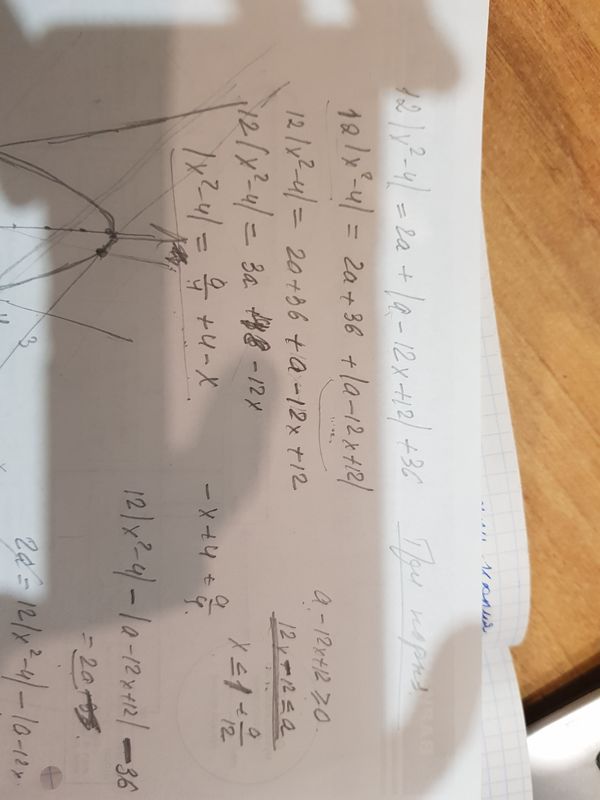 12|x²-4| = 2a + |a-12x+12| + 36
12|x²-4| = 2a+36 + |a-12x+12|
12|x²-4| = 2a+36 + a-12x+12
12|x²-4| = 3a -12x
|x²-4| = a/4 + 4 - x
a-12x+12 ≥ 0
12x-12 = a
x ≤ 1 + a/12
-x+4 + a/4
12|x²-4| - |a-12x+12| - 36
= 2a
2a = 12|x²-4| - |a-12x
3
4